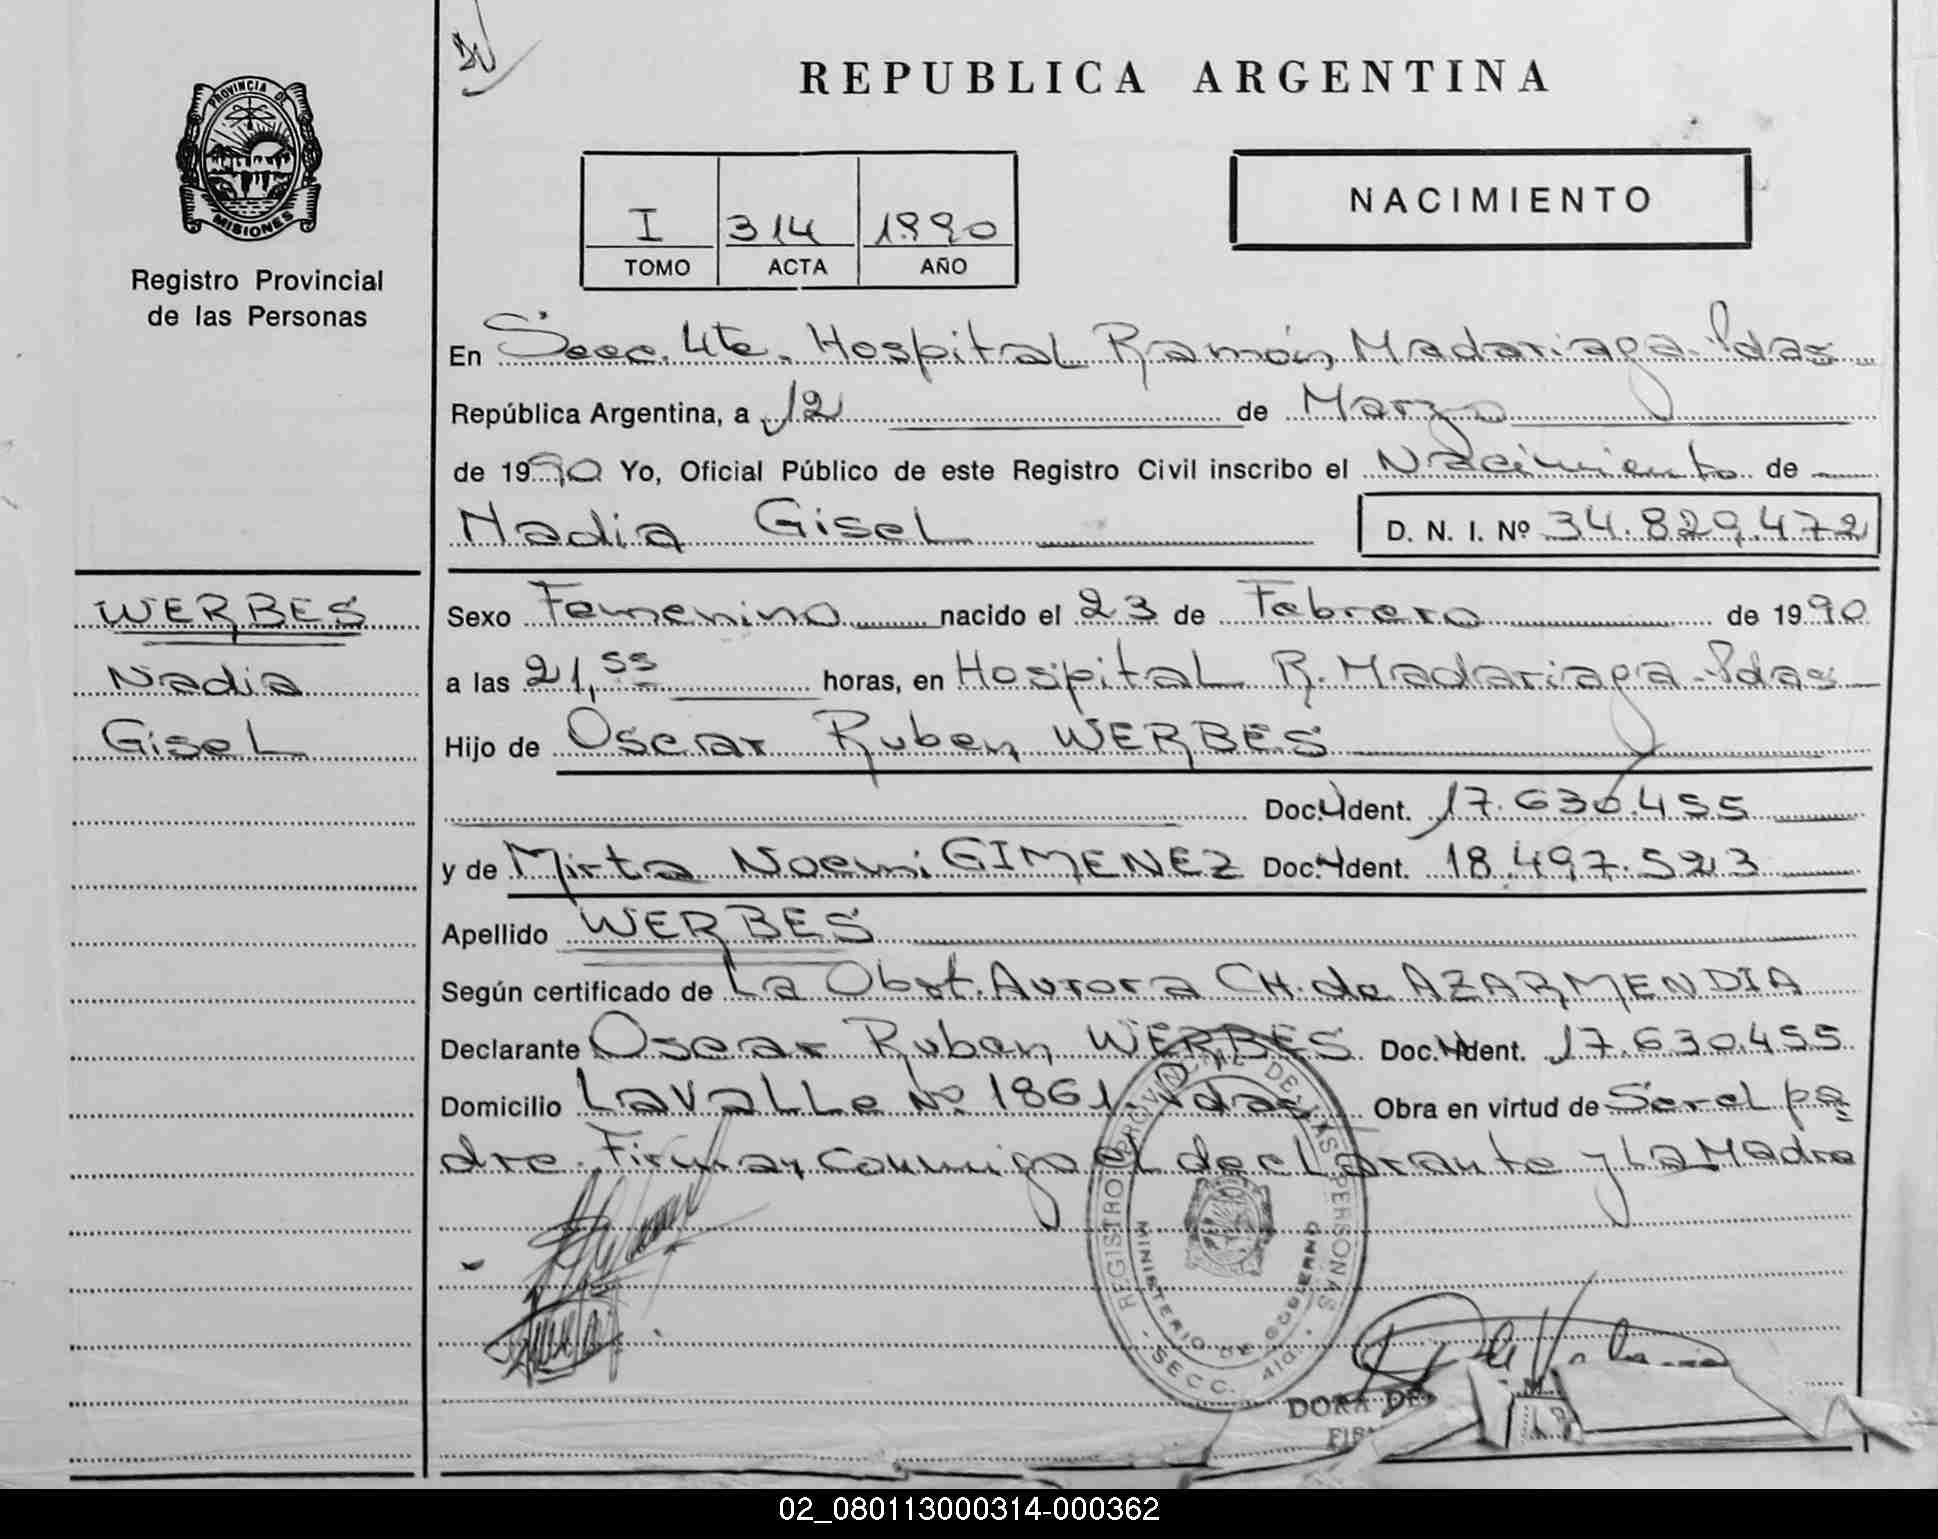 PROVINCIA DE
MISIONES
Registro Provincial
de las Personas
WERBES
Nadia
Gisel
REPUBLICA ARGENTINA
I 314 1990
TOMO ACTA AÑO
NACIMIENTO
En Secc. 4ta. Hospital Ramón Madariaga-Pdas
República Argentina, a 12 de Marzo
de 1990 Yo, Oficial Público de este Registro Civil inscribo el Nacimiento de
Nadia Gisel D. N. I. Nº 34.829.472
Sexo Femenino nacido el 23 de Febrero de 1990
a las 21,55 horas, en Hospital R. Madariaga-Pdas
Hijo de Oscar Ruben WERBES
Doc. Ident. 17.630.455
y de Mirta Noemi GIMENEZ Doc. Ident. 18.497.523
Apellido WERBES
Según certificado de La Obst. Aurora CH. de AZARMENDIA
Declarante Oscar Ruben WERBES Doc. Ident. 17.630.455
Domicilio Lavalle Nº 1861 Pdas Obra en virtud de Ser el pa
dre. Firman conmigo el declarante y La Madre
REGISTRO PROVINCIAL DE LAS PERSONAS
MINISTERIO DE GOBIERNO
SECC. 4ta.
DORA DE
02_080113000314-000362